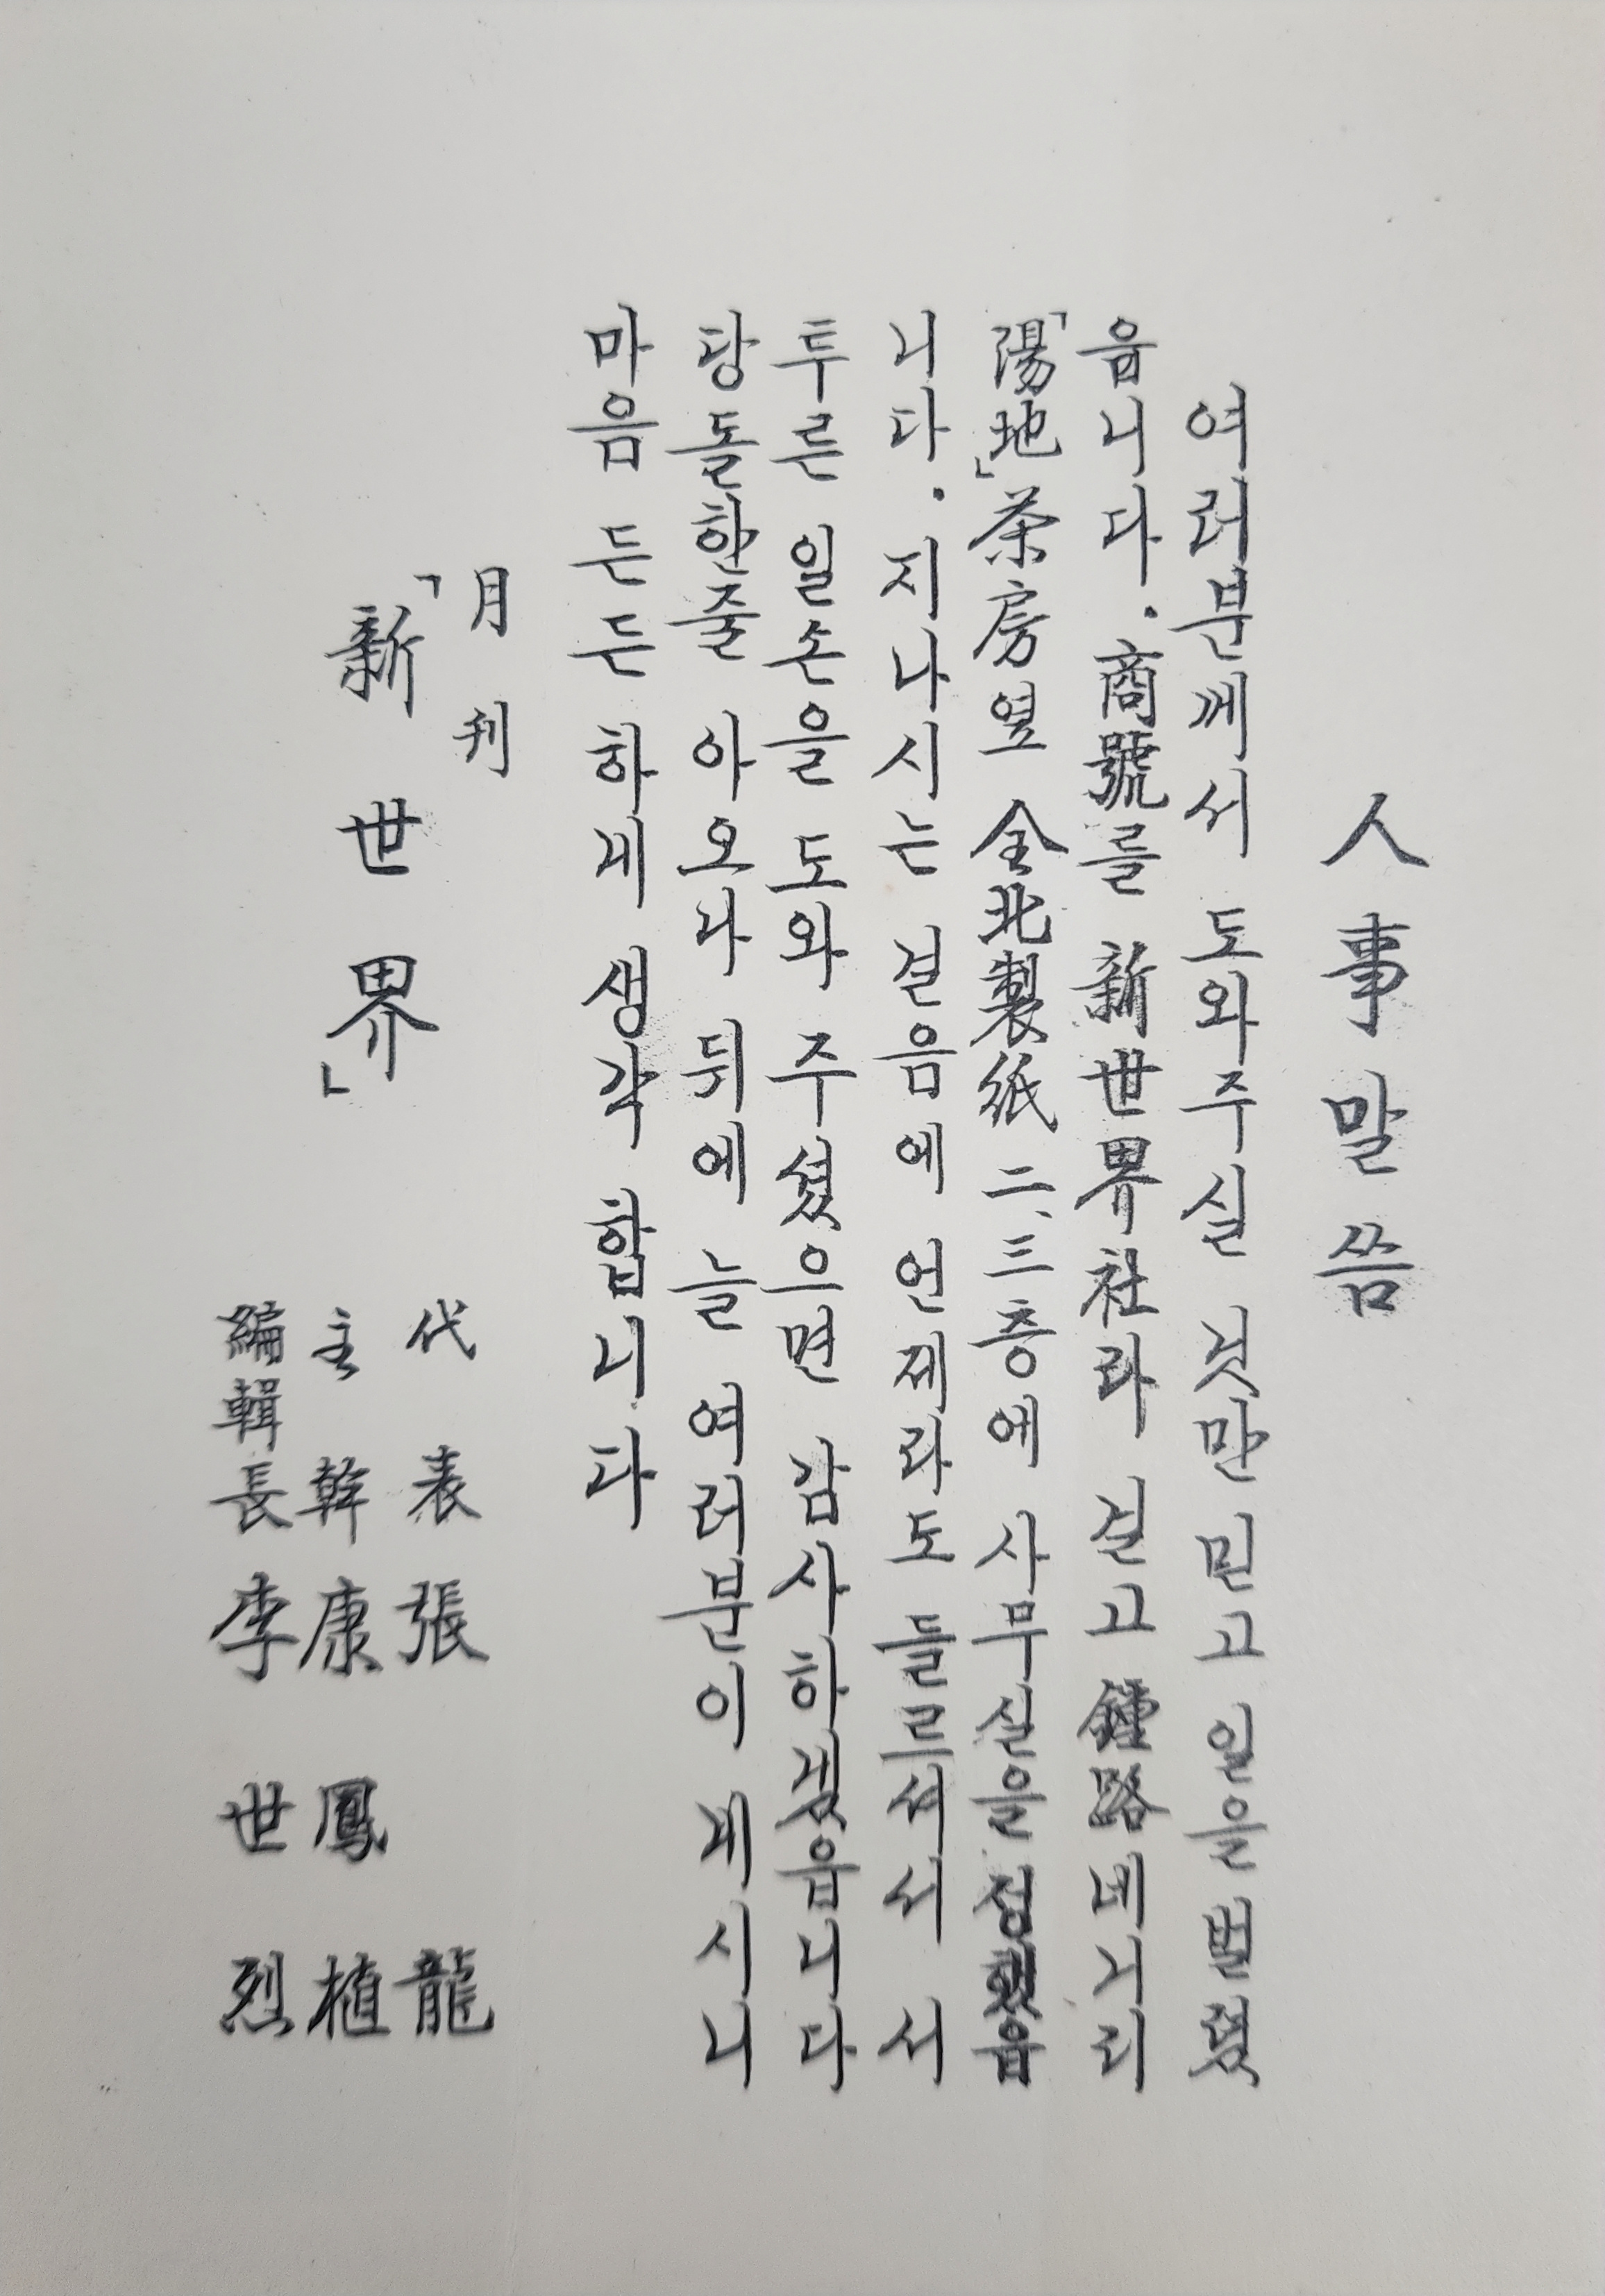 人事말씀
여러분께서 도와주실 것만 믿고 일을 벌렸
읍니다. 商號를 新世界社라 걸고 鍾路네거리
「陽地」茶房옆 全北製紙 二、三층에 사무실을 정했읍
니다. 지나시는 걸음에 언제라도 들르셔서 서
투른 일손을 도와 주셨으면 감사하겠읍니다
당돌한줄 아오나 뒤에 늘 여러분이 계시니
마음 든든 하게 생각 합니다
月刊
「新世界」
代表 張龍
主幹 康鳳植
編輯長 李世烈